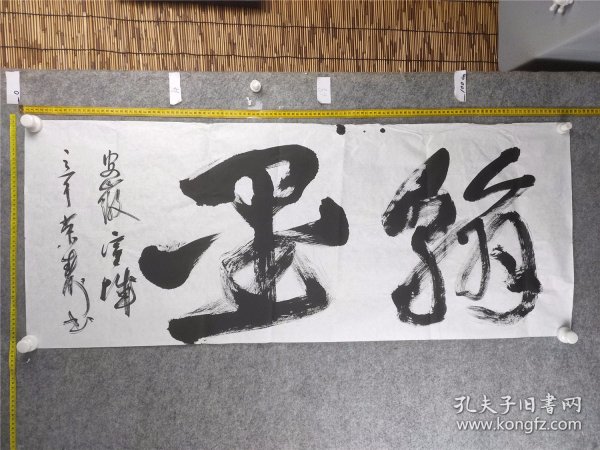 翰墨
安徽宣城
荣寿书
孔夫子旧书网
www.kongfz.com